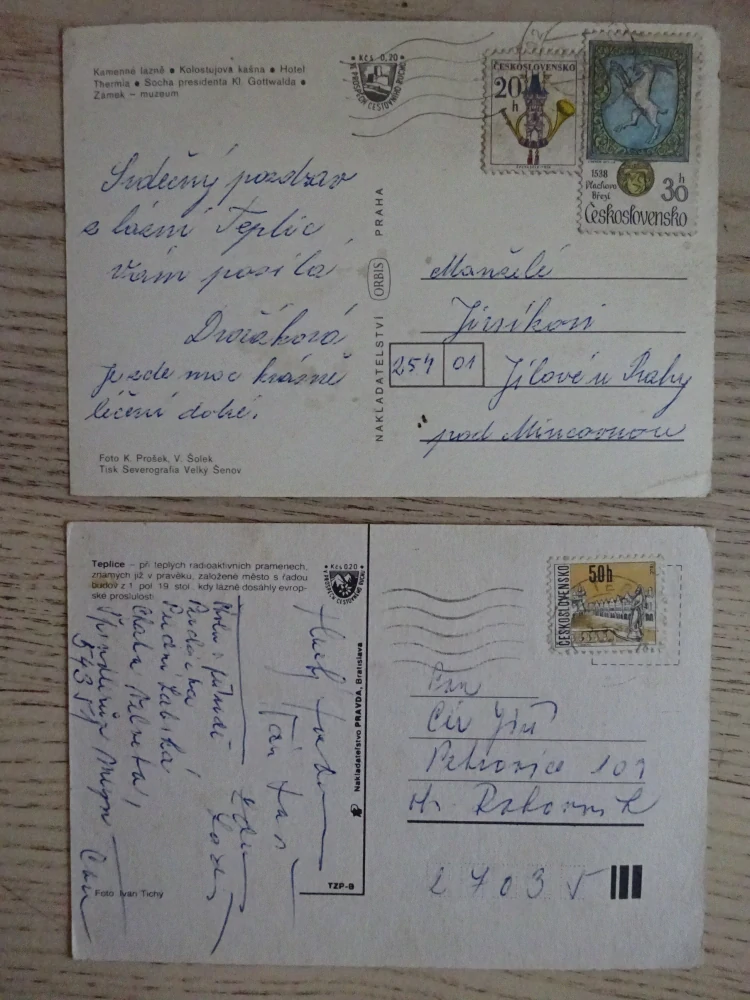 Kamenné lázně • Kolostujova kašna • Hotel
Thermia • Socha presidenta Kl. Gottwalda •
Zámek – muzeum
Kčs 0,20
VE PROSPĚCH CESTOVNÍHO RUCHU
ČESKOSLOVENSKO
20 h
1538
Vlachovo
Březí
30 h
Československo
Srdečný pozdrav
z lázní Teplic
Vám posílá
Dvořáková
Je zde moc krásně
léčení dobré.
Foto K. Prošek, V. Šolek
Tisk Severografia Velký Šenov
NAKLADATELSTVÍ ORBIS PRAHA
Manželé
Jirsíkovi
254 01 Jílové u Prahy
pod Mincovnou
Teplice – při teplých radioaktivních pramenech,
známých již v pravěku, založené město s řadou
budov z 1. pol. 19. stol., kdy lázně dosáhly evrop-
ské proslulosti
Kčs 0,20
VE PROSPĚCH CESTOVNÍHO RUCHU
ČESKOSLOVENSKO
50h
Přední Labská
Chata
Špindlerův Mlýn
54351
Foto Ivan Tichý
Nakladatelstvo PRAVDA, Bratislava
TZP-B
Pan
Jiří
Petrovice 101
27035